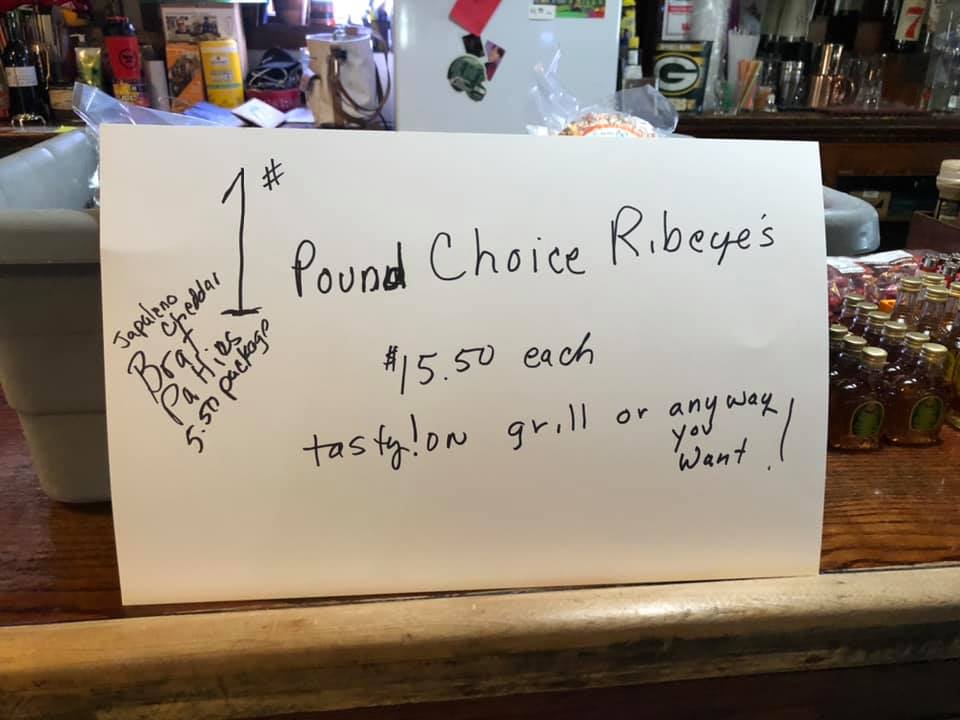 1 #
Pound Choice Ribeye's
$15.50 each
tasty! on grill or any way
you
want!
Japaleno
Cheddar
Brat
Patties
5.50 package
G
7